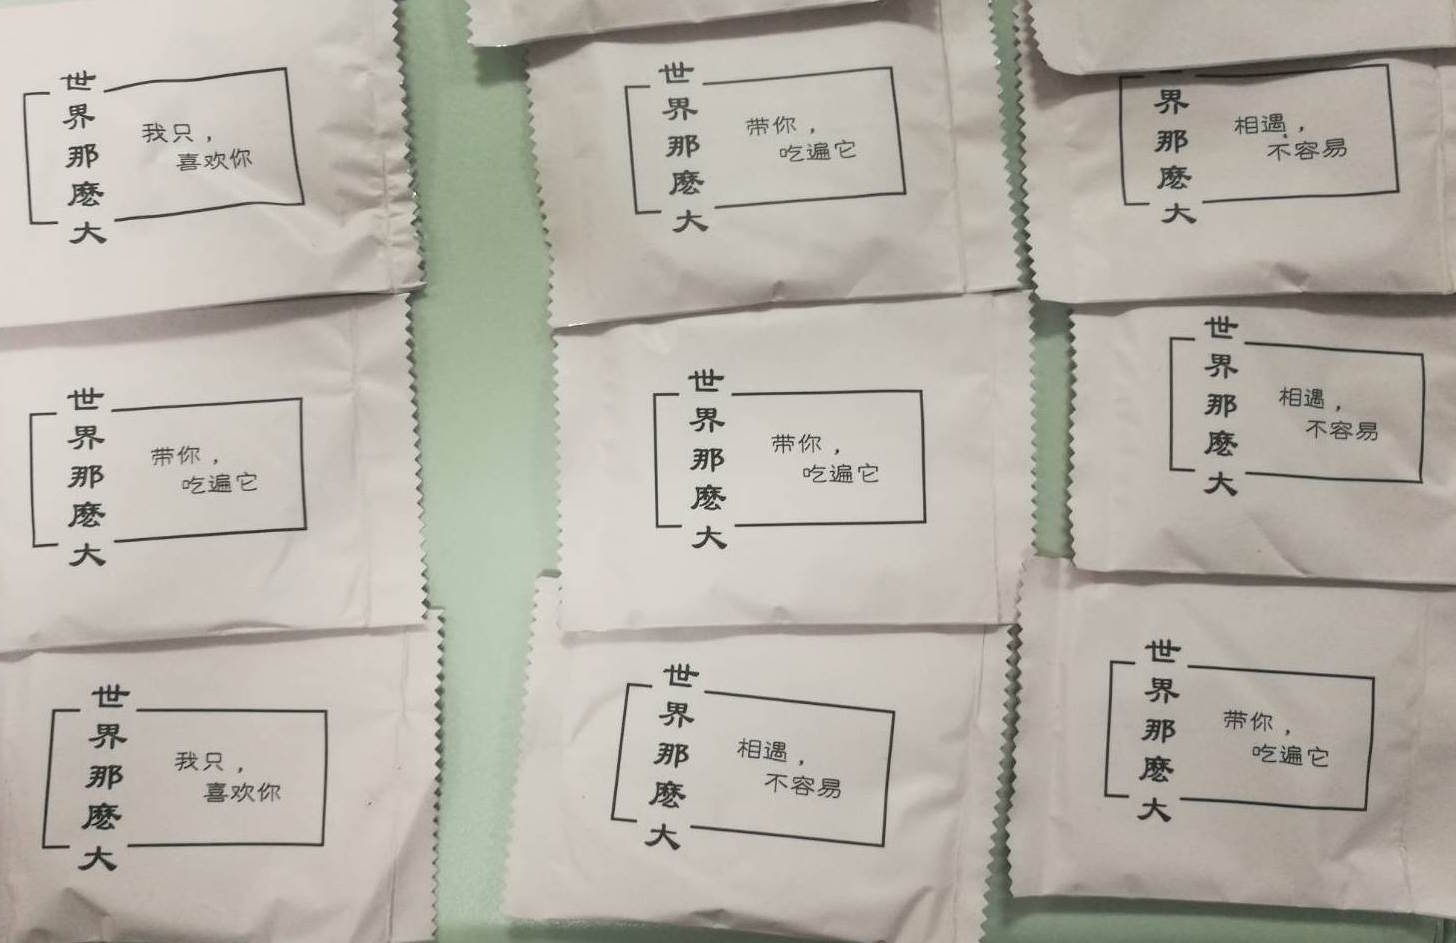 世界那麽大
我只，
喜欢你
世界那麽大
带你，
吃遍它
界那麽大
相遇，
不容易
世界那麽大
带你，
吃遍它
世界那麽大
带你，
吃遍它
世界那麽大
相遇，
不容易
世界那麽大
我只，
喜欢你
世界那麽大
相遇，
不容易
世界那麽大
带你，
吃遍它